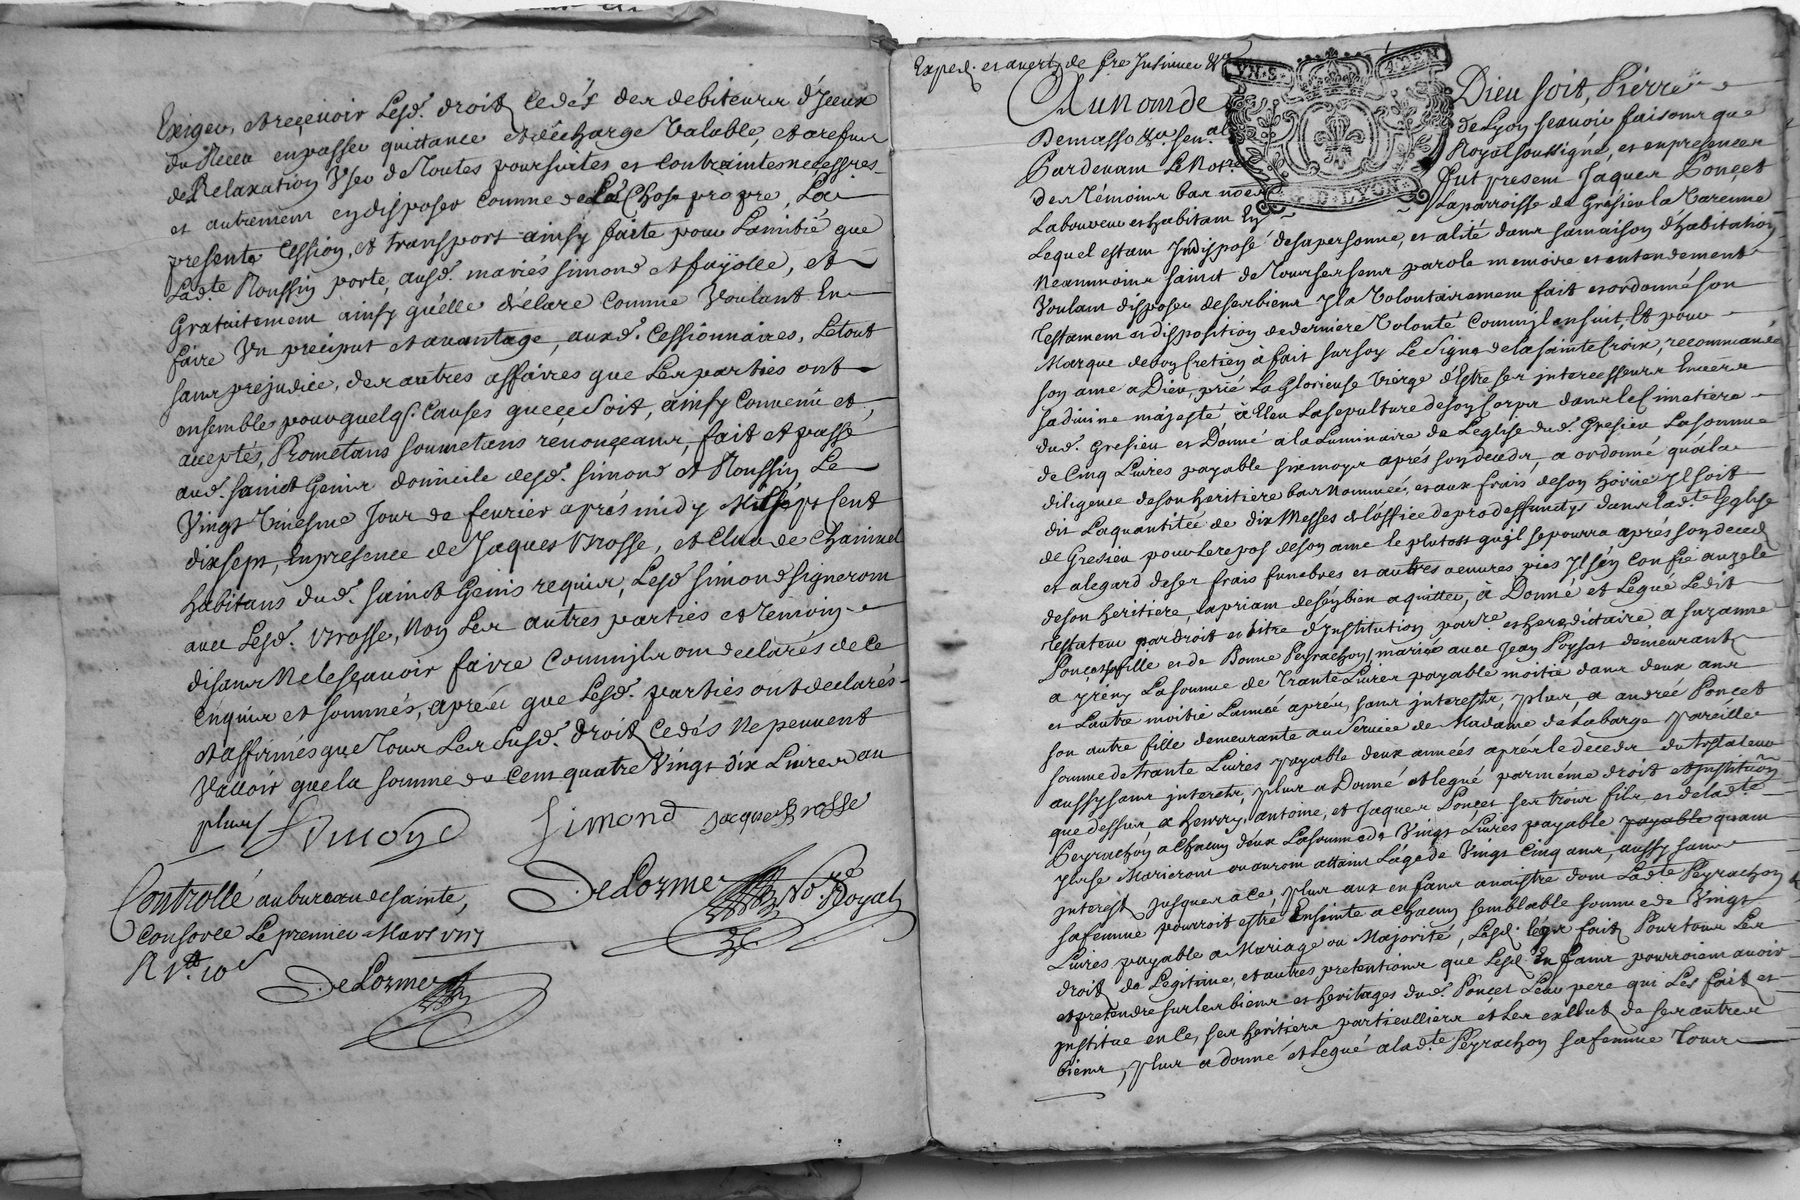 Exiger, et reçevoir Lesd. droits cedés des debiteurs d'Jceux
du Receu en passer quittance et décharge Valable, et a refus
de Relaxation Vser de Toutes poursuites et contraintes necessres
et autrement en disposer comme de sa Chose propre, La
presente Cession, et transport ainsy faite pour Lamitié que
Lad.te Roussin porte ausd. mariés Simond et fayolle, et
Gratuitement ainsy quélle déclare comme Voulant En
faire Vn preciput et avantage, ausd. Cessionnaires, Le tout
sans prejudice, des autres affaires que Les parties ont
ensembles pour quelqs. Causes que ce soit, ainsy Convenu et
acceptés, Prometans soumetans renonçeans, fait et passé
aud. sainct Genis domicile desd. simond et Roussin Le
Vingt Vniesme Jour de feurier aprés midy Mil sept Cent
dix sept, En presence de Jaques Brosse, et Claude Chainuel
habitans dud. sainct Genis requis, Lesd simond signeront
auec Lesd. Brosse, Non Les autres parties et temoin
disans Ne le sçauoir faire Comm'jls ont declarés de ce
Enquis et sommés, aprés que Lesd. parties ont declarés
et affirmés que Tous Les susd. droits Cedés Ne peuuent
Valloir que la somme de Cent quatre Vingt dix Liures au
plus / Simond Simond Jacque Brosse
Controllé au bureau de sainte, DeLorme No.re Royal
Consorce Le premier Mars 1717
R 1.tt 10 s
DeLorme
Exped. et averty de fre Jnsinuer
Au nom de Dieu soit, Pierre
Demasso &a. sen.al de Lyon scauoir faisons que
Pardeuant Le Not.re Royal soussigné, et en presence
des Témoins bas nommés fut present Jaques Ponçet
Laboureur et habitant En La parroisse de Grésieu la Varenne
Lequel estant Indisposé de sa personne, et alité dans sa maison d'habitation
Neanmoins sainct de Tous ses sens parole memoire et entendement
Voulant disposer de ses biens Jl a Volontairement fait et ordonné son
Testament et disposition de derniere Volonté Comm'jl ensuit, Et pour
Marque de bon Cretien à fait sur soy Le Signe de la sainte Croix, recommandé
son ame a Dieu, prié La Glorieuse Vierge d'Estre ses intercesseurs Enuers
sa diuine majesté, à Eleu La sepulture de son Corps dans le Cimetiere
dud. Gresieu et Donné a la Luminaire de L'eglise dud. Gresieu La somme
de Cinq Liures payable six moys aprés son deceds, a ordonné qu'a la
diligence de son heritiere bas Nommée, et aux frais de son hoirie Jl soit
dit La quantitée de dix Messes et l'office de pro deffunctys dans lad.te Eglise
de Gresieu pour Le repos de son ame le plutost qu'jl se pourra aprés son deceds
et a legard de ses frais funebres et autres oeuures pies Jl s'en Confie au zele
de son heritiere, la priant de s'en bien aquitter, à Donné et Legué Ledit
Testateur par droit et titre d'Jnstitution par.re et hereditaire, a suzanne
Poncet fille et de Bonne Peyrachon, mariée auec Jean Poysat demeurant
a Jrény La somme de Trante Liures payable moitié dans deux ans
et Lautre moitié L'année aprés, sans interests, plus, a andrée Poncet
son autre fille demeurante au seruice de Madame de Labarge pareille
somme de trante Liures payable deux années aprés le deceds du testateur
aussy sans interests, plus a Donné et legué par méme droit et Jnstitu̅on
que dessus, a henrry, antoine, et Jaques Ponçet ses trois fils et de lad.te
Peyrachon a Chacun d'eux La somme de Vingt Liures payable payable quant
Jls se Marieront ou auront attaint L'age de Vingt Cinq ans, aussy sans
jnterest jusques a ce, plus aux enfans a naistre dont Lad.te Peyrachon
sa femme pourroit estre Enseinte a Chacun semblable somme de Vingt
Liures payable a Mariage ou Majorité, Lesd. legs faits Pour tous Les
droits de Legitime, et autres pretentions que Lesd. Enfans pourroient auoir
et pretendre sur les biens et heritages dud. Poncet Leur pere qui Les fait et
jnstitue en ce, ses heritiers particulliers et Les exclut de ses autres
biens, plus a donné et Legué a lad.te Peyrachon sa femme Tous